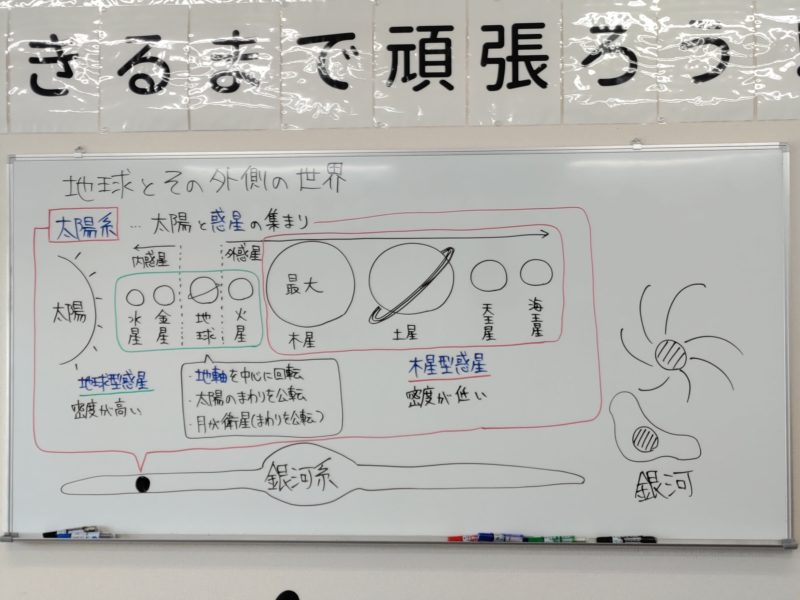 きるまで頑張ろう
地球とその外側の世界
太陽系 … 太陽と惑星の集まり
内惑星
外惑星
太陽
水星
金星
地球
火星
最大
木星
土星
天王星
海王星
地球型惑星
密度が高い
・地軸を中心に回転
・太陽のまわりを公転
・月が衛星(まわりを公転)
木星型惑星
密度が低い
銀河系
銀河